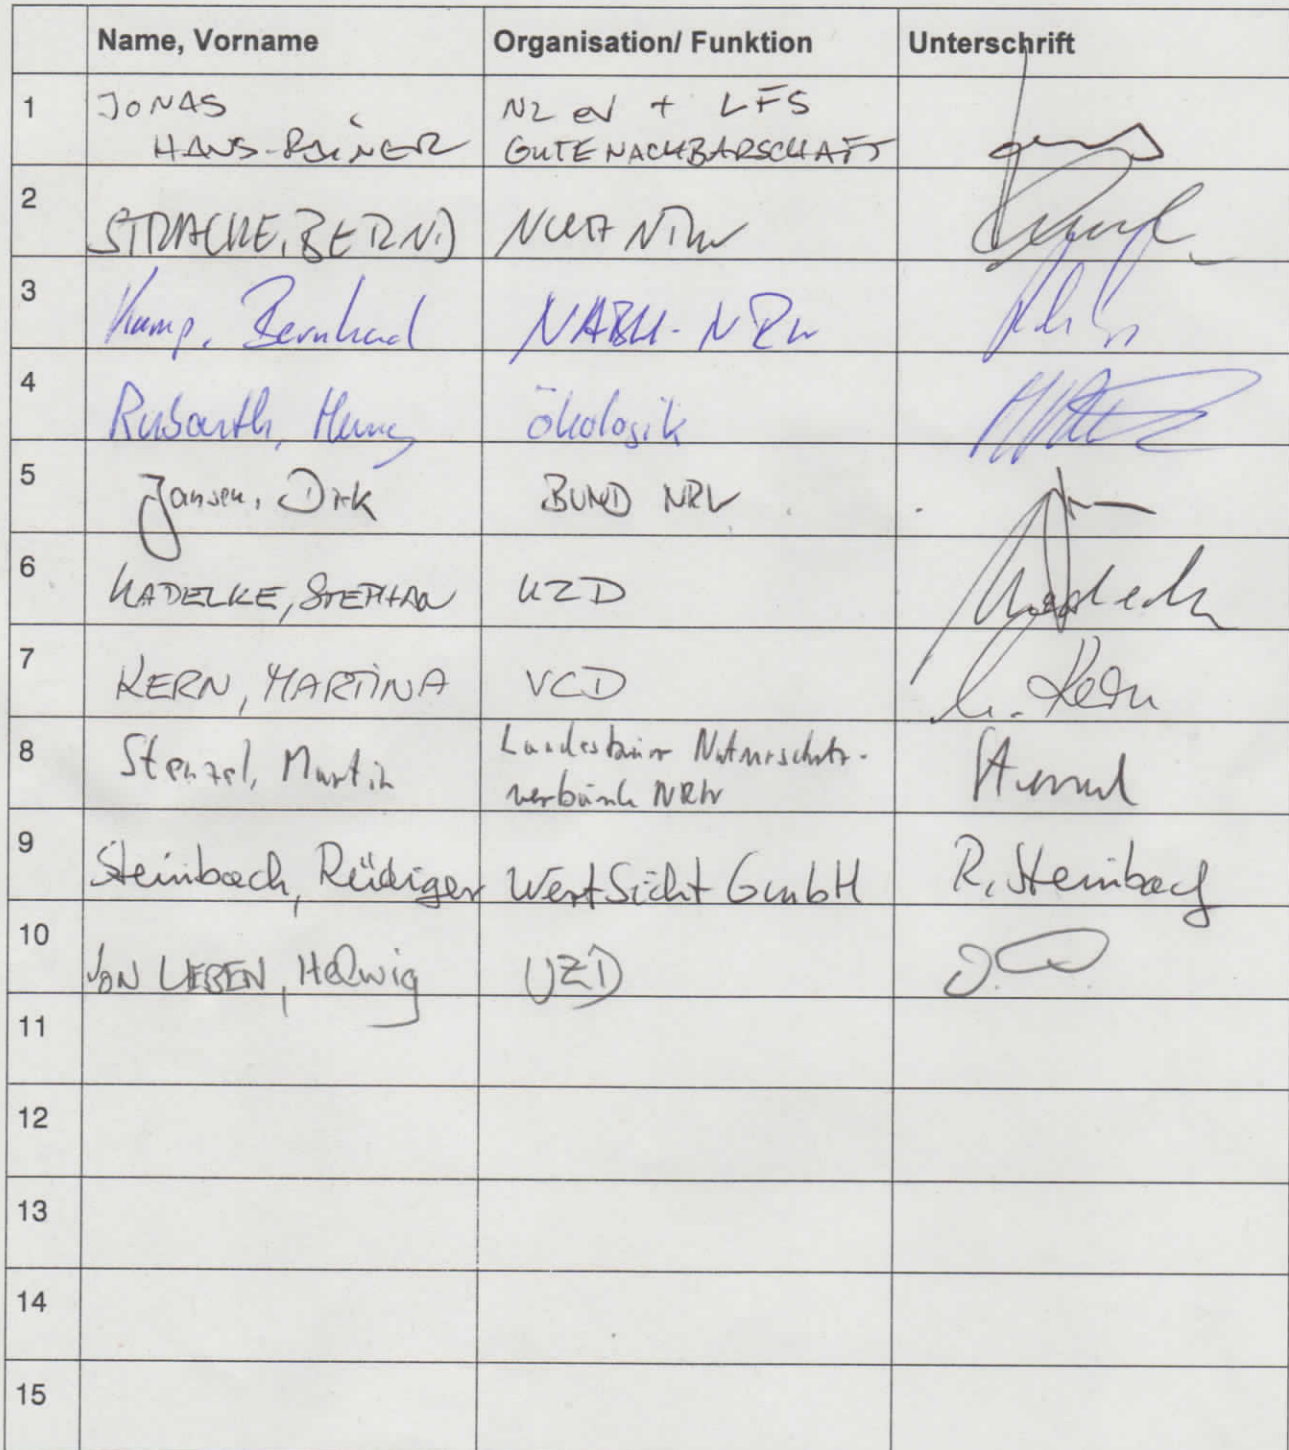 Name, Vorname Organisation/ Funktion Unterschrift
1 JONAS NZ eV + LFS
HANS-RAINER GUTE NACHBARSCHAFT
2 STRACKE, BERND NRW
3 Kamp, Bernhard NABU-NRW
4 Rubarth, ökologik
5 Jansen, Dirk BUND NRW
6 KADELKE, STEPHAN UZD
7 KERN, MARTINA VCD M. Kern
8 Stenzel, Martin Landesbüro Naturschutz-
verbände NRW
9 Steinbach, Rüdiger WertSicht GmbH R. Steinbach
10 VON LIEBEN, Helwig UZD
11
12
13
14
15